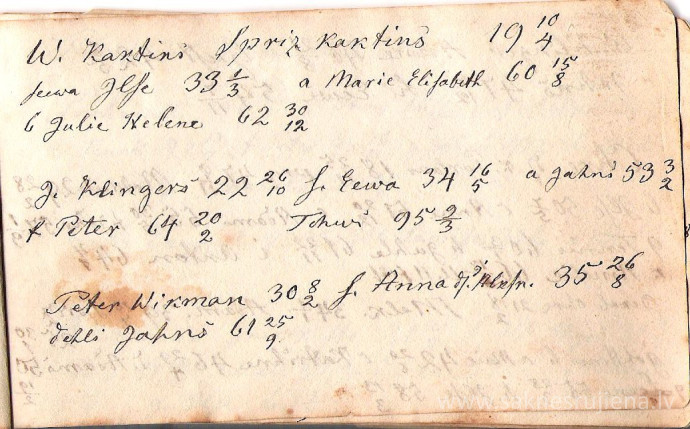 W. Kaktiņš Spriz Kaktiņš 19 10/4
seewa Ilse 33 1/3 a Marie Elisabeth 60 15/8
b Julie Helene 62 30/12
J. Klingerš 22 26/10 s. Eewa 34 16/5 a Jahnš 53 3/2
f Peter 64 20/2 Tehwš 95 2/3
Peter Wikman 30 8/2 s. Anna dz. 35 26/8
dehli Jahnš 61 25/9
www.saknesrujiena.lv